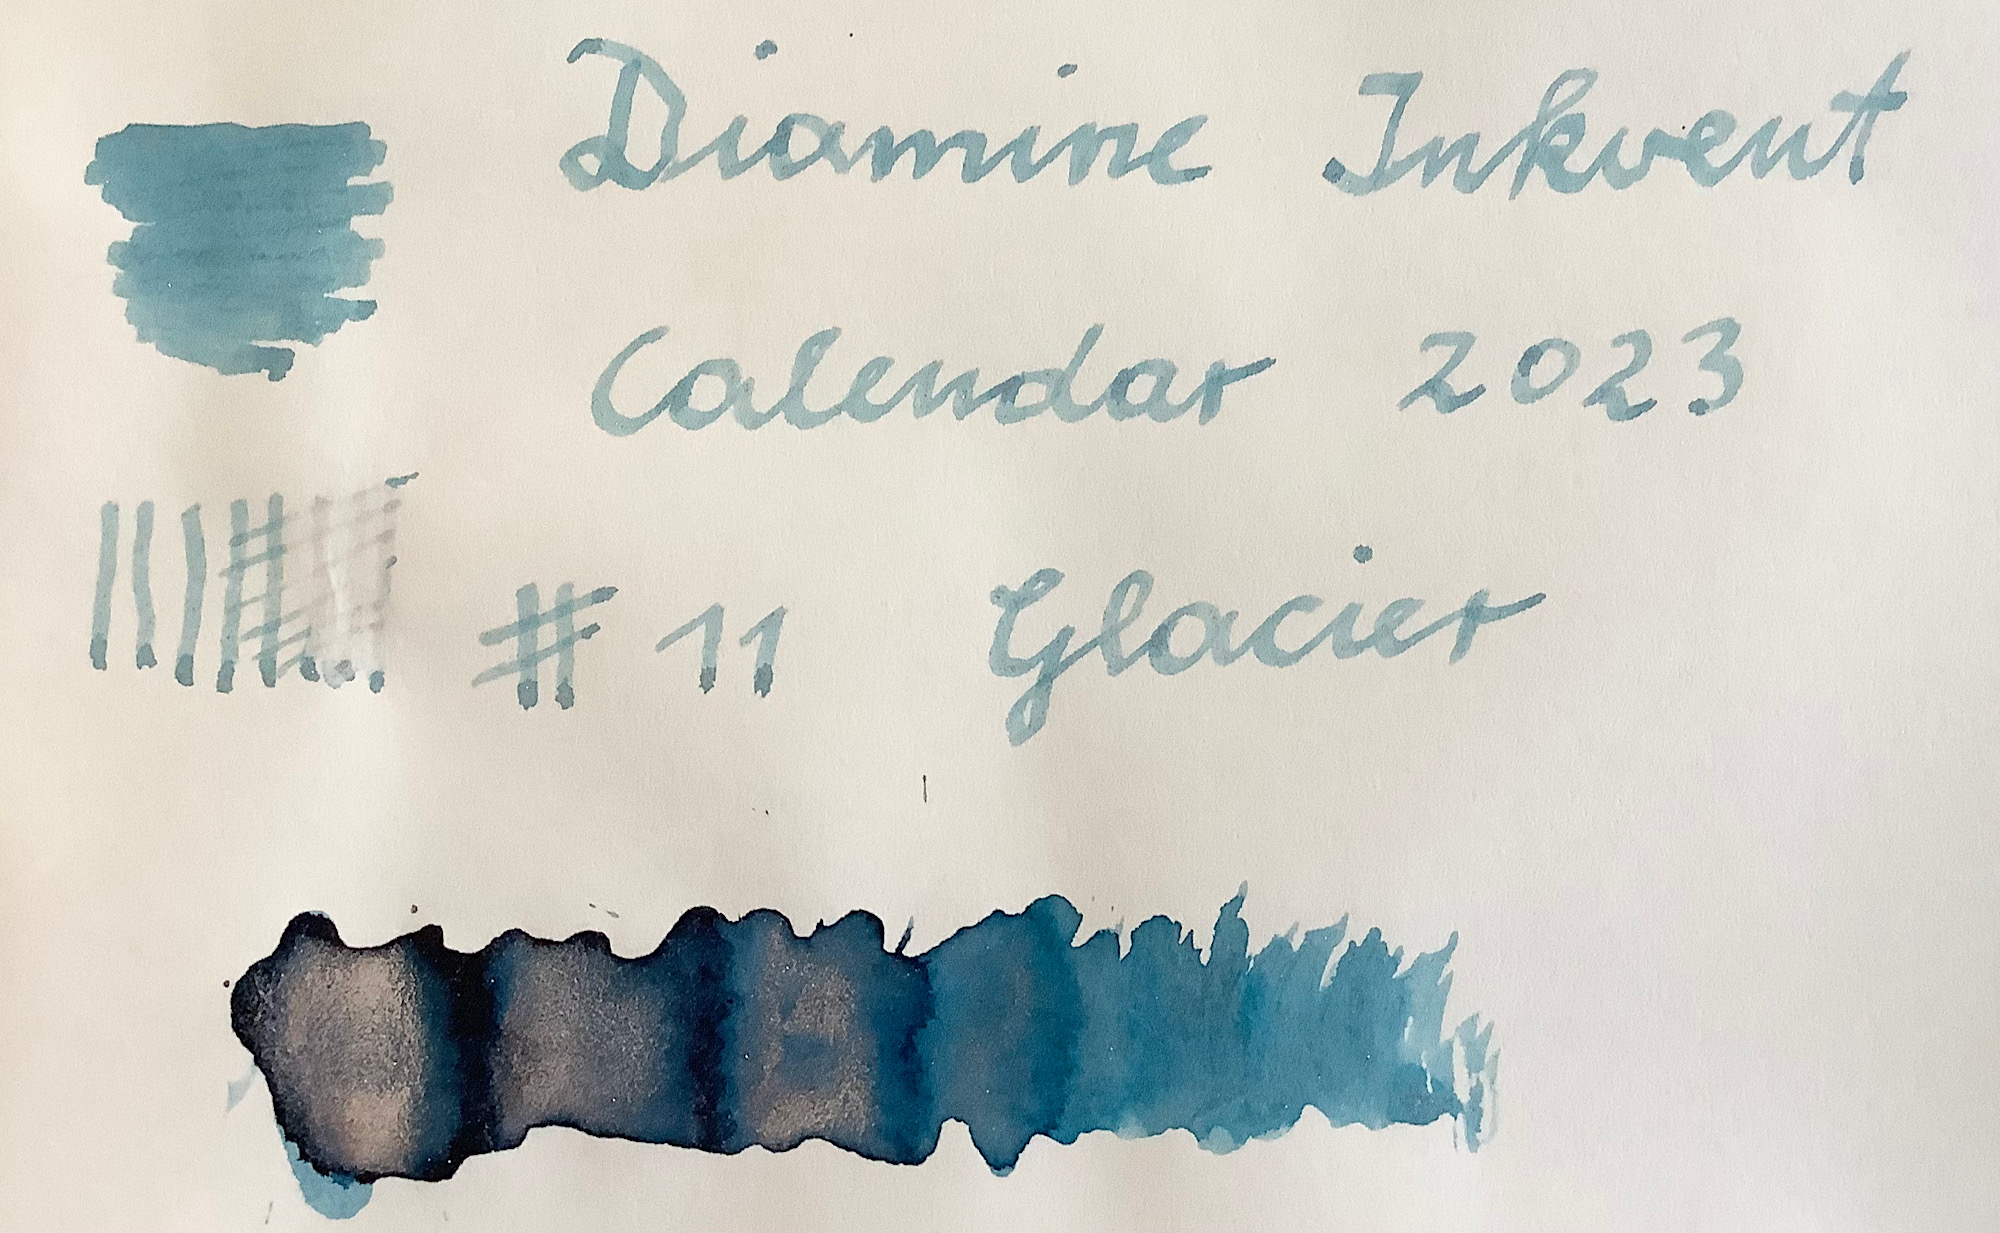 Diamine Inkvent
Calendar 2023
# 11 Glacier